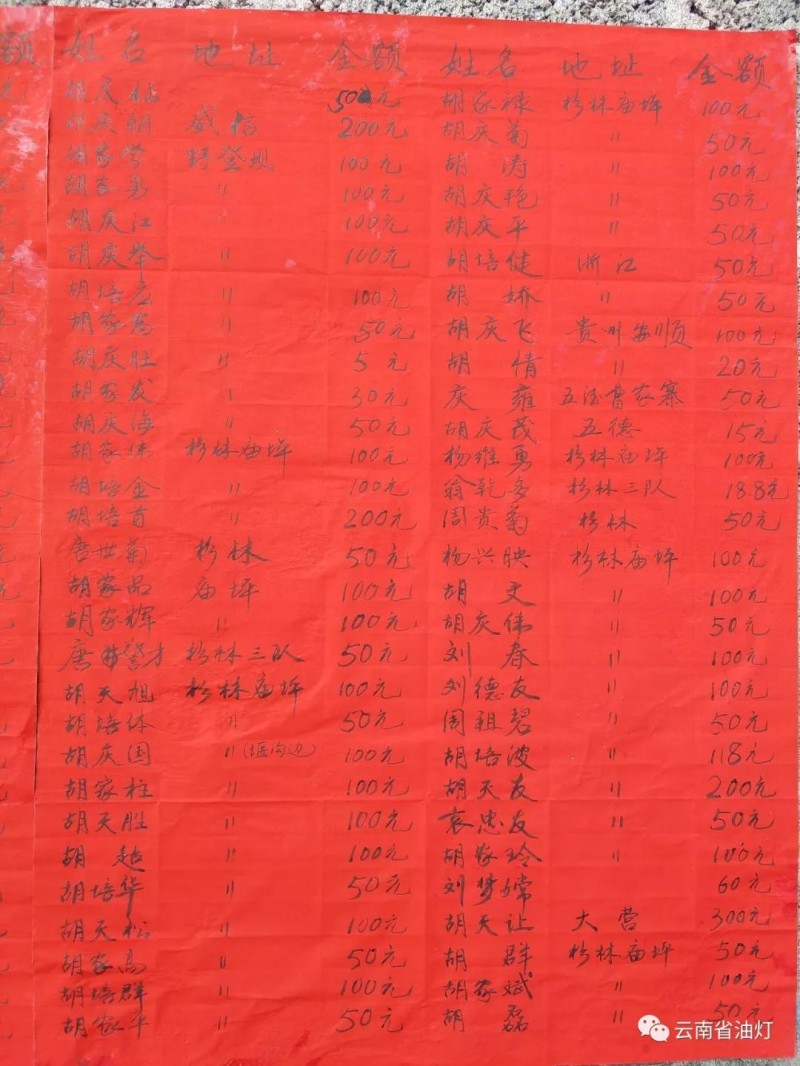 额 姓名 地址 金额 姓名 地址 金额
胡庆 50元 胡家禄 杉林庙坪 100元
胡庆朝 威信 200元 胡庆菊 〃 50元
胡家学 登坝 100元 胡涛 〃 100元
胡家勇 〃 100元 胡庆艳 〃 50元
胡庆江 〃 100元 胡庆平 〃 50元
胡庆举 〃 100元 胡培健 浙江 50元
胡培 〃 100元 胡娇 〃 50元
胡家 〃 50元 胡庆飞 贵州安顺 100元
胡庆壮 〃 5元 胡倩 〃 20元
胡家发 〃 30元 庆雍 五德曹家寨 50元
胡庆海 〃 50元 胡庆茂 五德 15元
胡家伟 杉林庙坪 100元 杨维勇 杉林庙坪 100元
胡培金 〃 100元 翁乾多 杉林三队 18.8元
胡培首 〃 200元 周贵菊 杉林 50元
唐世菊 杉林 50元 杨兴映 杉林庙坪 100元
胡家品 庙坪 100元 胡文 〃 100元
胡家辉 〃 100元 胡庆伟 〃 50元
唐 才 杉林三队 50元 刘春 〃 100元
胡天旭 杉林庙坪 100元 刘德友 〃 100元
胡培体 〃 50元 周祖碧 〃 50元
胡庆国 〃(堰沟边) 100元 胡培波 〃 118元
胡家柱 〃 100元 胡天友 〃 200元
胡天胜 〃 100元 袁忠友 〃 50元
胡超 〃 100元 胡家玲 〃 100元
胡培华 〃 50元 刘梦嫦 60元
胡天松 〃 100元 胡天让 大营 300元
胡家高 〃 50元 胡群 杉林庙坪 50元
胡培群 〃 100元 胡家斌 〃 100元
胡家平 〃 50元 胡磊 〃 50元
云南省油灯